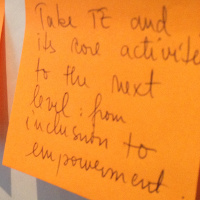 Take TE and
its core activite
to the next
level: from
inclusion to
empowerment